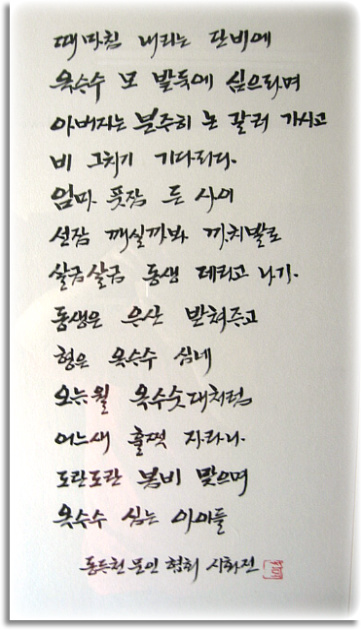 때마침 내리는 단비에
옥수수 모 밭둑에 심으라며
아버지는 분주히 논 갈러 가시고
비 그치기 기다리다.
엄마 풋잠 든 사이
선잠 깨실까봐 까치발로
살금살금 동생 데리고 나가.
동생은 우산 받쳐주고
형은 옥수수 심네
오뉴월 옥수숫대처럼
어느새 훌쩍 자라니.
도란도란 봄비 맞으며
옥수수 심는 아이들
동두천 문인 협회 시화전